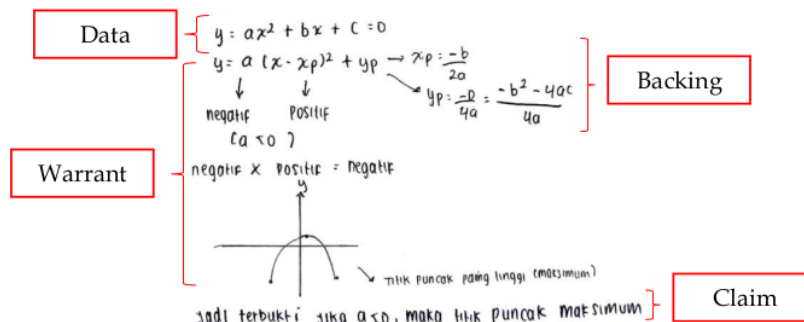 Data
y = ax² + bx + c = 0
y = a (x - xp)² + yp → xp = -b/2a
yp = -D/4a = -b² - 4ac/4a
Backing
negatif positif
(a < 0)
Warrant
negatif x positif = negatif
y
Titik puncak paling tinggi (maksimum)
Jadi terbukti jika a<0, maka titik puncak maksimum
Claim